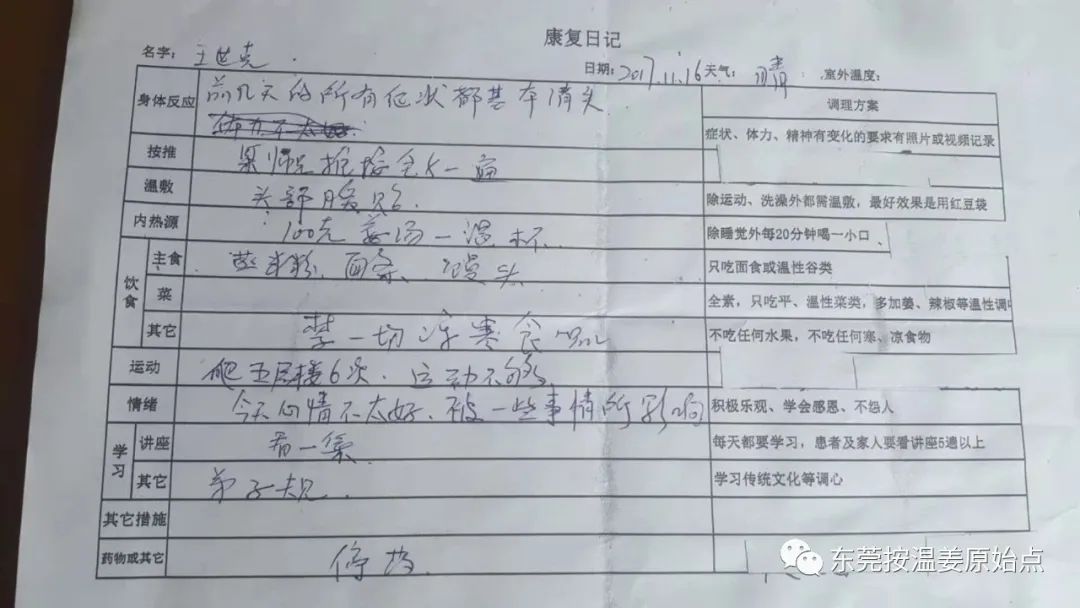 康复日记
名字：王世克
日期：2017.11.16 天气：晴 室外温度：
身体反应 前几天的所有症状都基本消失
调理方案
症状、体力、精神有变化的要求有照片或视频记录
按推 师兄推按全人一遍
温敷 头部暖贴
除运动、洗澡外都需温敷，最好效果是用红豆袋
内热源 100克姜汤一温杯
除睡觉外每20分钟喝一小口
饮食
主食 蒸米粉、面条、馒头
只吃面食或温性谷类
菜
全素，只吃平、温性菜类，多加姜、辣椒等温性调
其它 禁一切冷寒食品
不吃任何水果，不吃任何寒、凉食物
运动 爬五层楼6次．运动不够
情绪 今天心情不太好．被一些事情所影响
积极乐观、学会感恩、不怨人
学习
讲座 看一集
每天都要学习，患者及家人要看讲座5遍以上
其它 弟子规．
学习传统文化等调心
其它措施
药物或其它 停药．
东莞按温姜原始点